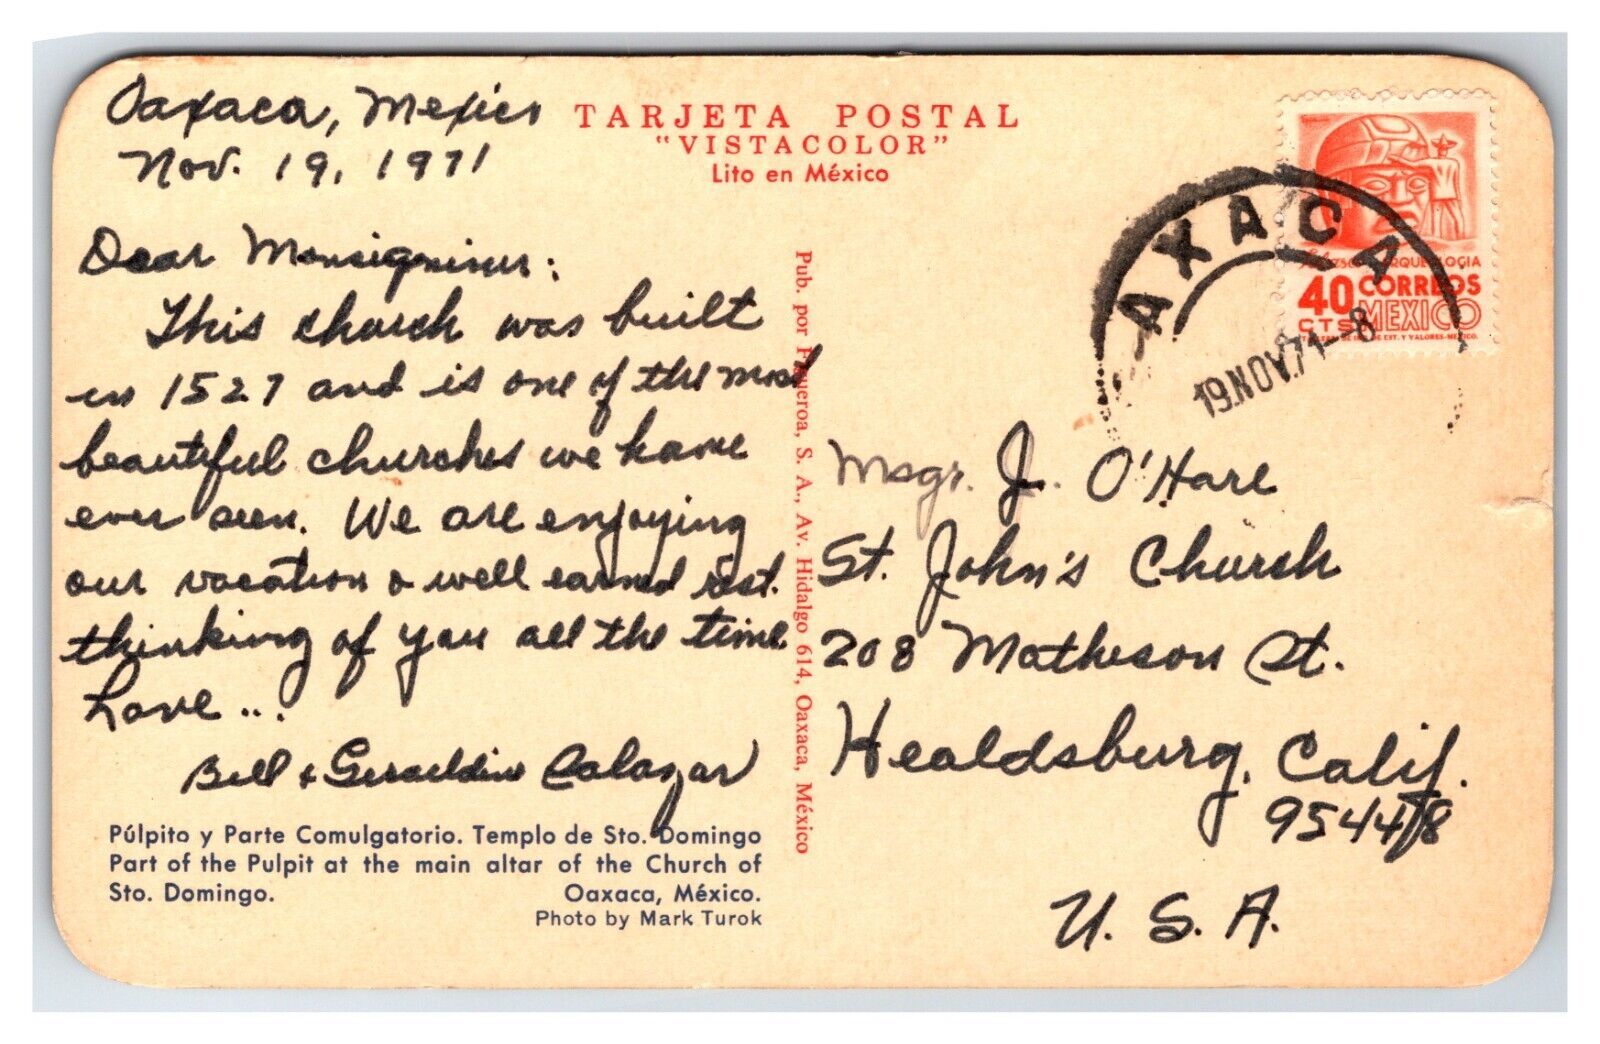 Oaxaca, Mexico
Nov. 19, 1971
Dear Monsignieur:
This church was built
in 1527 and is one of the most
beautiful churches we have
ever seen. We are enjoying
our vacation & well earned rest.
thinking of you all the time
Love...
Bill & Geraldine Calazar
Púlpito y Parte Comulgatorio. Templo de Sto. Domingo
Part of the Pulpit at the main altar of the Church of
Sto. Domingo. Oaxaca, México.
Photo by Mark Turok
TARJETA POSTAL
"VISTACOLOR"
Lito en México
Pub. por Figueroa, S. A., Av. Hidalgo 614, Oaxaca, México
ARQUEOLOGIA
40 CORREOS
CTS MEXICO
EST. Y VALORES-MEXICO.
OAXACA
19.NOV.71-8
Msgr. J. O'Hare
St. John's Church
208 Matheson St.
Healdsburg, Calif.
95448
U. S. A.